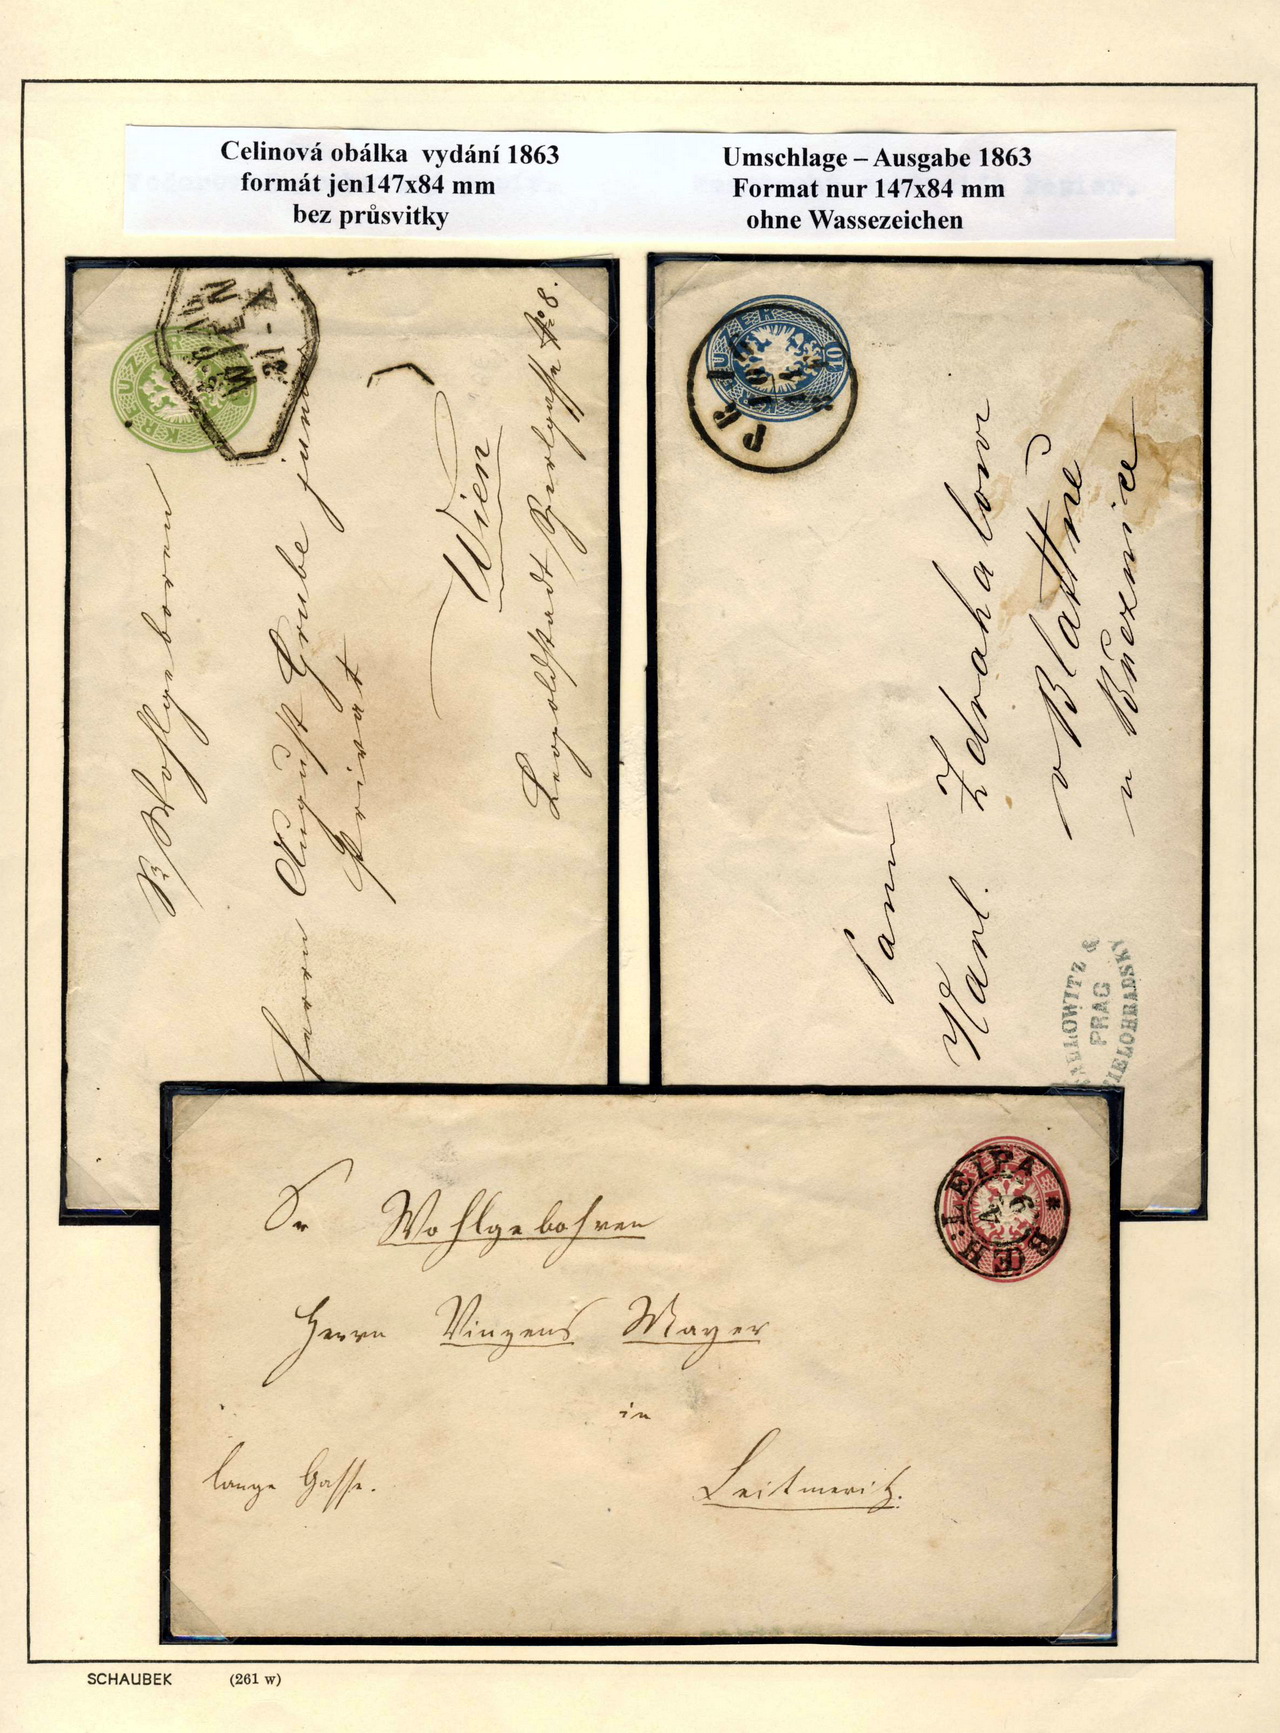 Celinová obálka vydání 1863
formát jen147x84 mm
bez průsvitky
Umschlage – Ausgabe 1863
Format nur 147x84 mm
ohne Wassezeichen
KREUZER
WIEN
21-X
Sr Wohlgeboren
Herrn August Grube junior
Privat
Wien
Leopoldstadt Sperlgasse No 8.
KREUZER
10
Panu
Karl. Zdrahalovi
v Blattné
u Březnice
& PRAG
WIELOHRADSKY
B: LEIPA
Sr Wohlgebohren
Herrn Vinzens Mayer
in
lange Gasse.
Leitmeritz.
SCHAUBEK
(261 w)